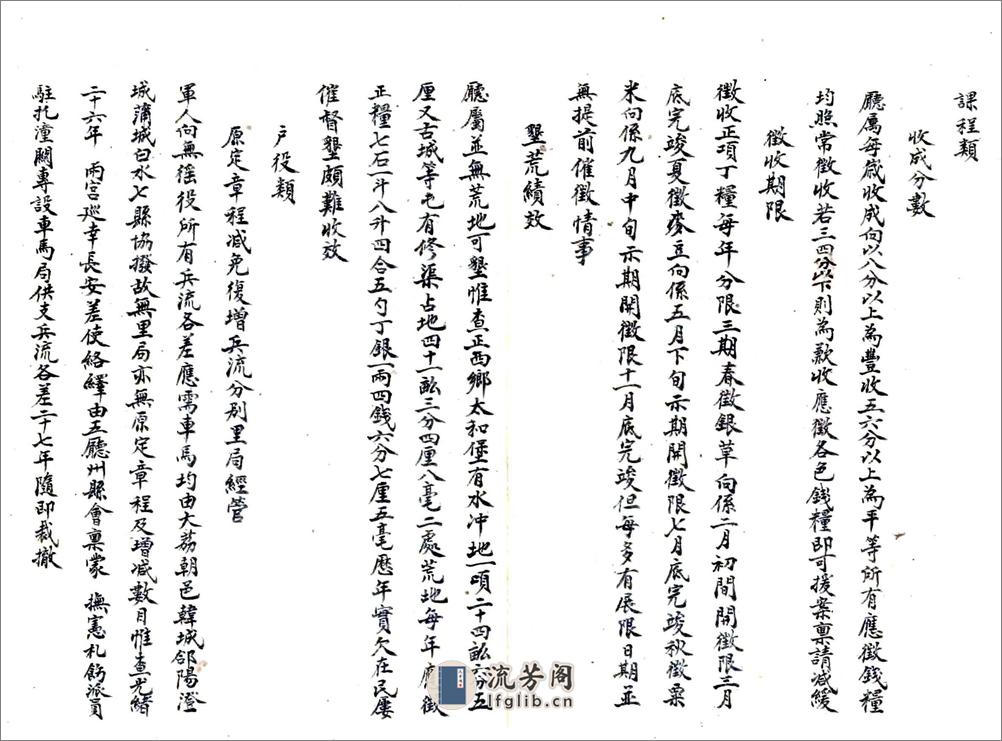 課程類
收成分數
廳屬每歲收成向以八分以上為豐收五六分以上為平等所有應徵錢糧
均照常徵收若三四分以下則為歉收應徵各色錢糧即可援案稟請減緩
徵收期限
徵收正項丁糧每年分限三期春徵銀草向係二月初間開徵限三月
底完竣夏徵麥豆向係五月下旬示期開徵限七月底完竣秋徵粟
米向係九月中旬示期開徵限十一月底完竣但每多有展限日期並
無提前催徵情事
墾荒績效
廳屬並無荒地可墾惟查正西鄉太和堡有水冲地一頃二十四畝六分五
厘又古城等屯有修渠占地四十一畝三分四厘八毫二處荒地每年應徵
正糧七石一斗八升四合五勺丁銀一兩四錢六分七厘五毫歷年實欠在民屢
催督墾頗難收效
户役類
原定章程減免復增兵流分別里局經管
軍人向無徭役所有兵流各差應需車馬均由大荔朝邑韓城郃陽澄
城蒲城白水七縣協撥故無里局亦無原定章程及增減數目惟查光緒
二十六年 兩宮巡幸長安差使絡繹由五廳州縣會稟蒙 撫憲札飭派員
駐扎潼關專設車馬局供支兵流各差二十七年隨即裁撤
流芳阁
lfglib.cn